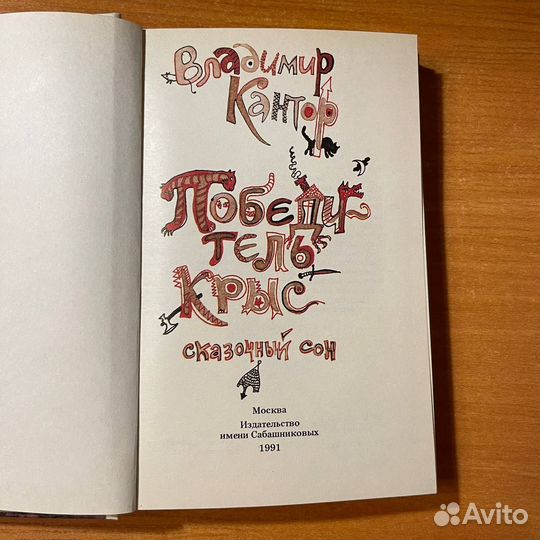 Владимир
Кантор
Победи-
тель
крыс
сказочный сон
Москва
Издательство
имени Сабашниковых
1991
Avito